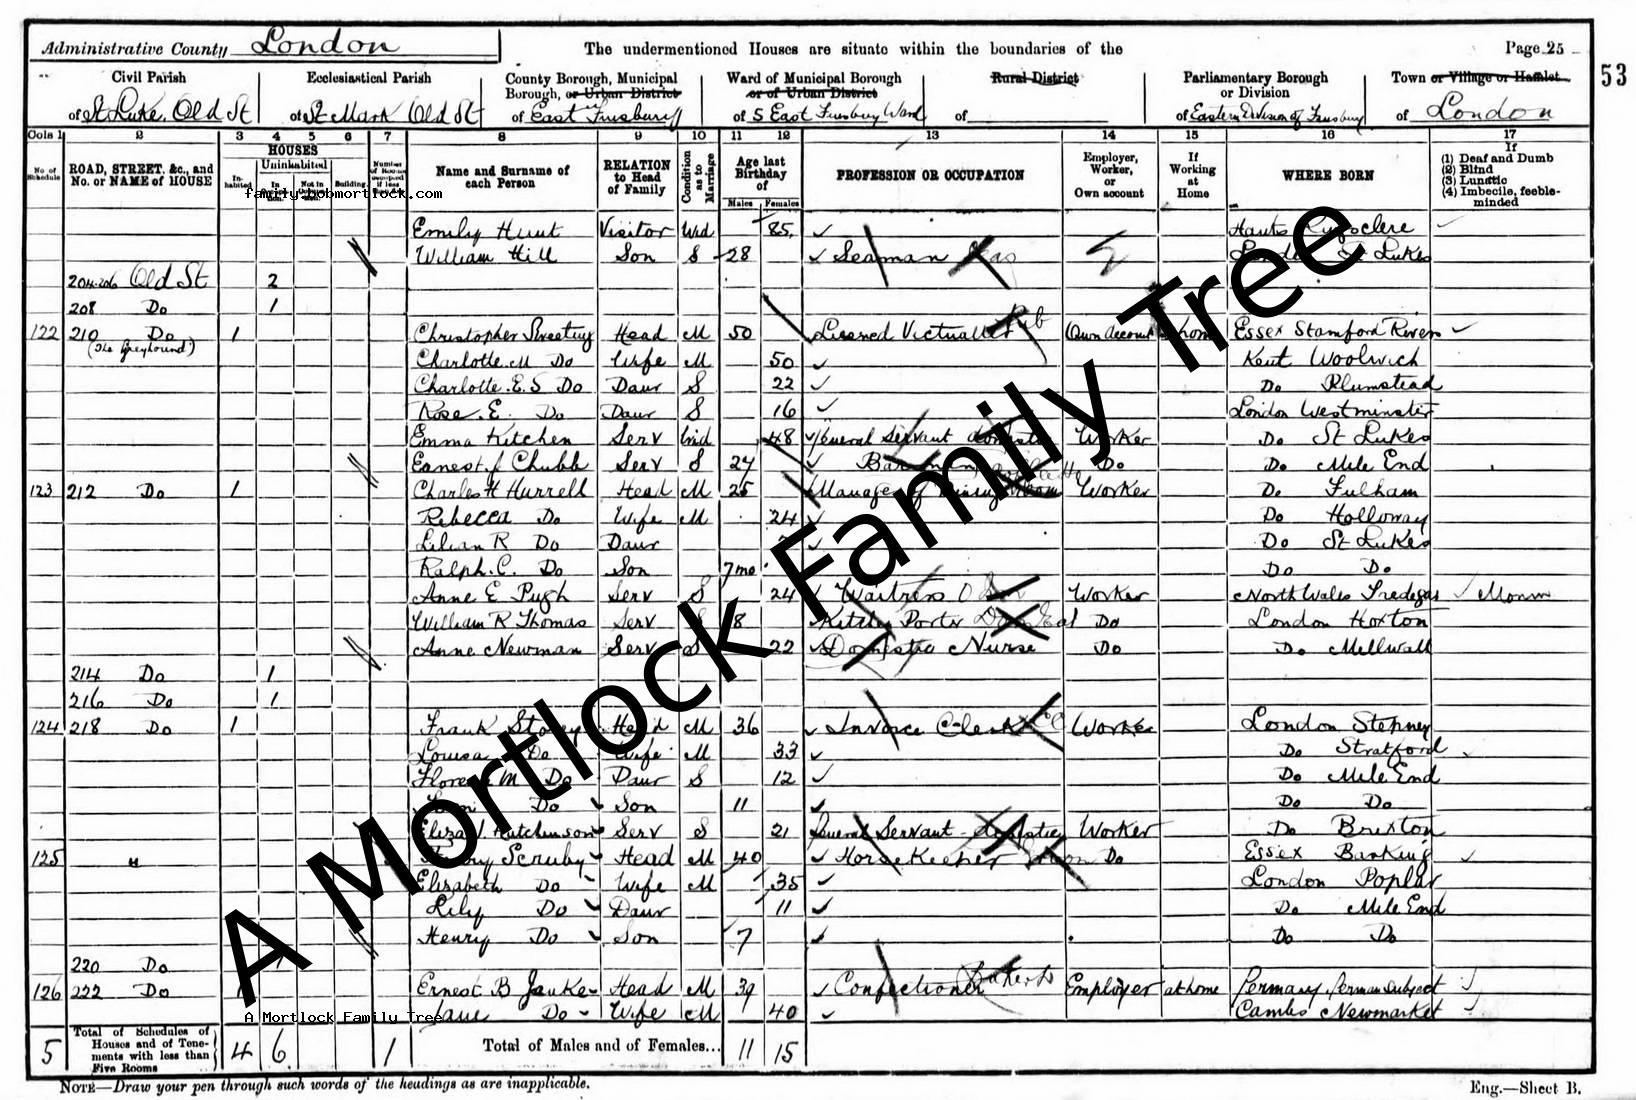 Administrative County London The undermentioned Houses are situate within the boundaries of the Page 25
53
Civil Parish Ecclesiastical Parish County Borough, Municipal Borough, or Urban District Ward of Municipal Borough or of Urban District Rural District Parliamentary Borough or Division Town or Village or Hamlet
of St Luke, Old St of St Mark Old St of East Finsbury of S East Finsbury Ward of of Eastern Division of Finsbury of London
Cols 1 2 3 4 5 6 7 8 9 10 11 12 13 14 15 16 17
No of Schedule ROAD, STREET, &c., and No. or NAME of HOUSE HOUSES Inhabited Uninhabited Building Name and Surname of each Person RELATION to Head of Family Condition as to Marriage Age last Birthday of Males Females PROFESSION OR OCCUPATION Employer, Worker, or Own account If Working at Home WHERE BORN If (1) Deaf and Dumb (2) Blind (3) Lunatic (4) Imbecile, feeble-minded
family.bobmortlock.com
Emily Hunt Visitor Wid 85 Hants Kingsclere
William Hill Son S 28 Seaman London St Lukes
204-206 Old St 2
208 Do 1
122 210 Do (The Greyhound) 1 Christopher Sweeting Head M 50 Licened Victualler Pub Own Account Home Essex Stamford Rivers
Charlotte M Do Wife M 50 Kent Woolwich
Charlotte E. S Do Daur S 22 Do Plumstead
Rose. E. Do Daur S 16 London Westminster
Emma Kitchen Serv Wid 48 General Servant domestic Worker Do St Lukes
Ernest J Chubb Serv S 27 Barman Do Do Mile End
123 212 Do 1 Charles H Hurrell Head M 25 Manager of Dining Room Worker Do Fulham
Rebecca Do Wife M 24 Do Holloway
Lilian R Do Daur Do St Lukes
Ralph. C. Do Son 7mo Do Do
Anne E Pugh Serv S 24 Waitress Worker North Wales Tredegar Monm
William R Thomas Serv 18 Kitchen Porter Do London Hoxton
Anne Newman Serv S 22 Domestic Nurse Do Do Millwall
214 Do 1
216 Do 1
124 218 Do 1 Frank Storey Head M 36 Invoice Clerk Worker London Stepney
Louisa Do Wife M 33 Do Stratford
Florence M Do Daur S 12 Do Mile End
Do Son 11 Do Do
Eliza J. Hutchinson Serv S 21 General Servant domestic Worker Do Brixton
125 " Henry Scruby Head M 40 Horse Keeper Groom Do Essex Barking
Elizabeth Do Wife M 35 London Poplar
Lily Do Daur 11 Do Mile End
Henry Do Son 7 Do Do
220 Do 1
126 222 Do Ernest B Janke Head M 39 Confectioner Baker Employer at home Germany German Subject
Jane Do Wife M 40 Cambs Newmarket
A Mortlock Family Tree
5 Total of Schedules of Houses and of Tenements with less than Five Rooms 4 6 1 Total of Males and of Females... 11 15
NOTE—Draw your pen through such words of the headings as are inapplicable. Eng.—Sheet B.
A Mortlock Family Tree